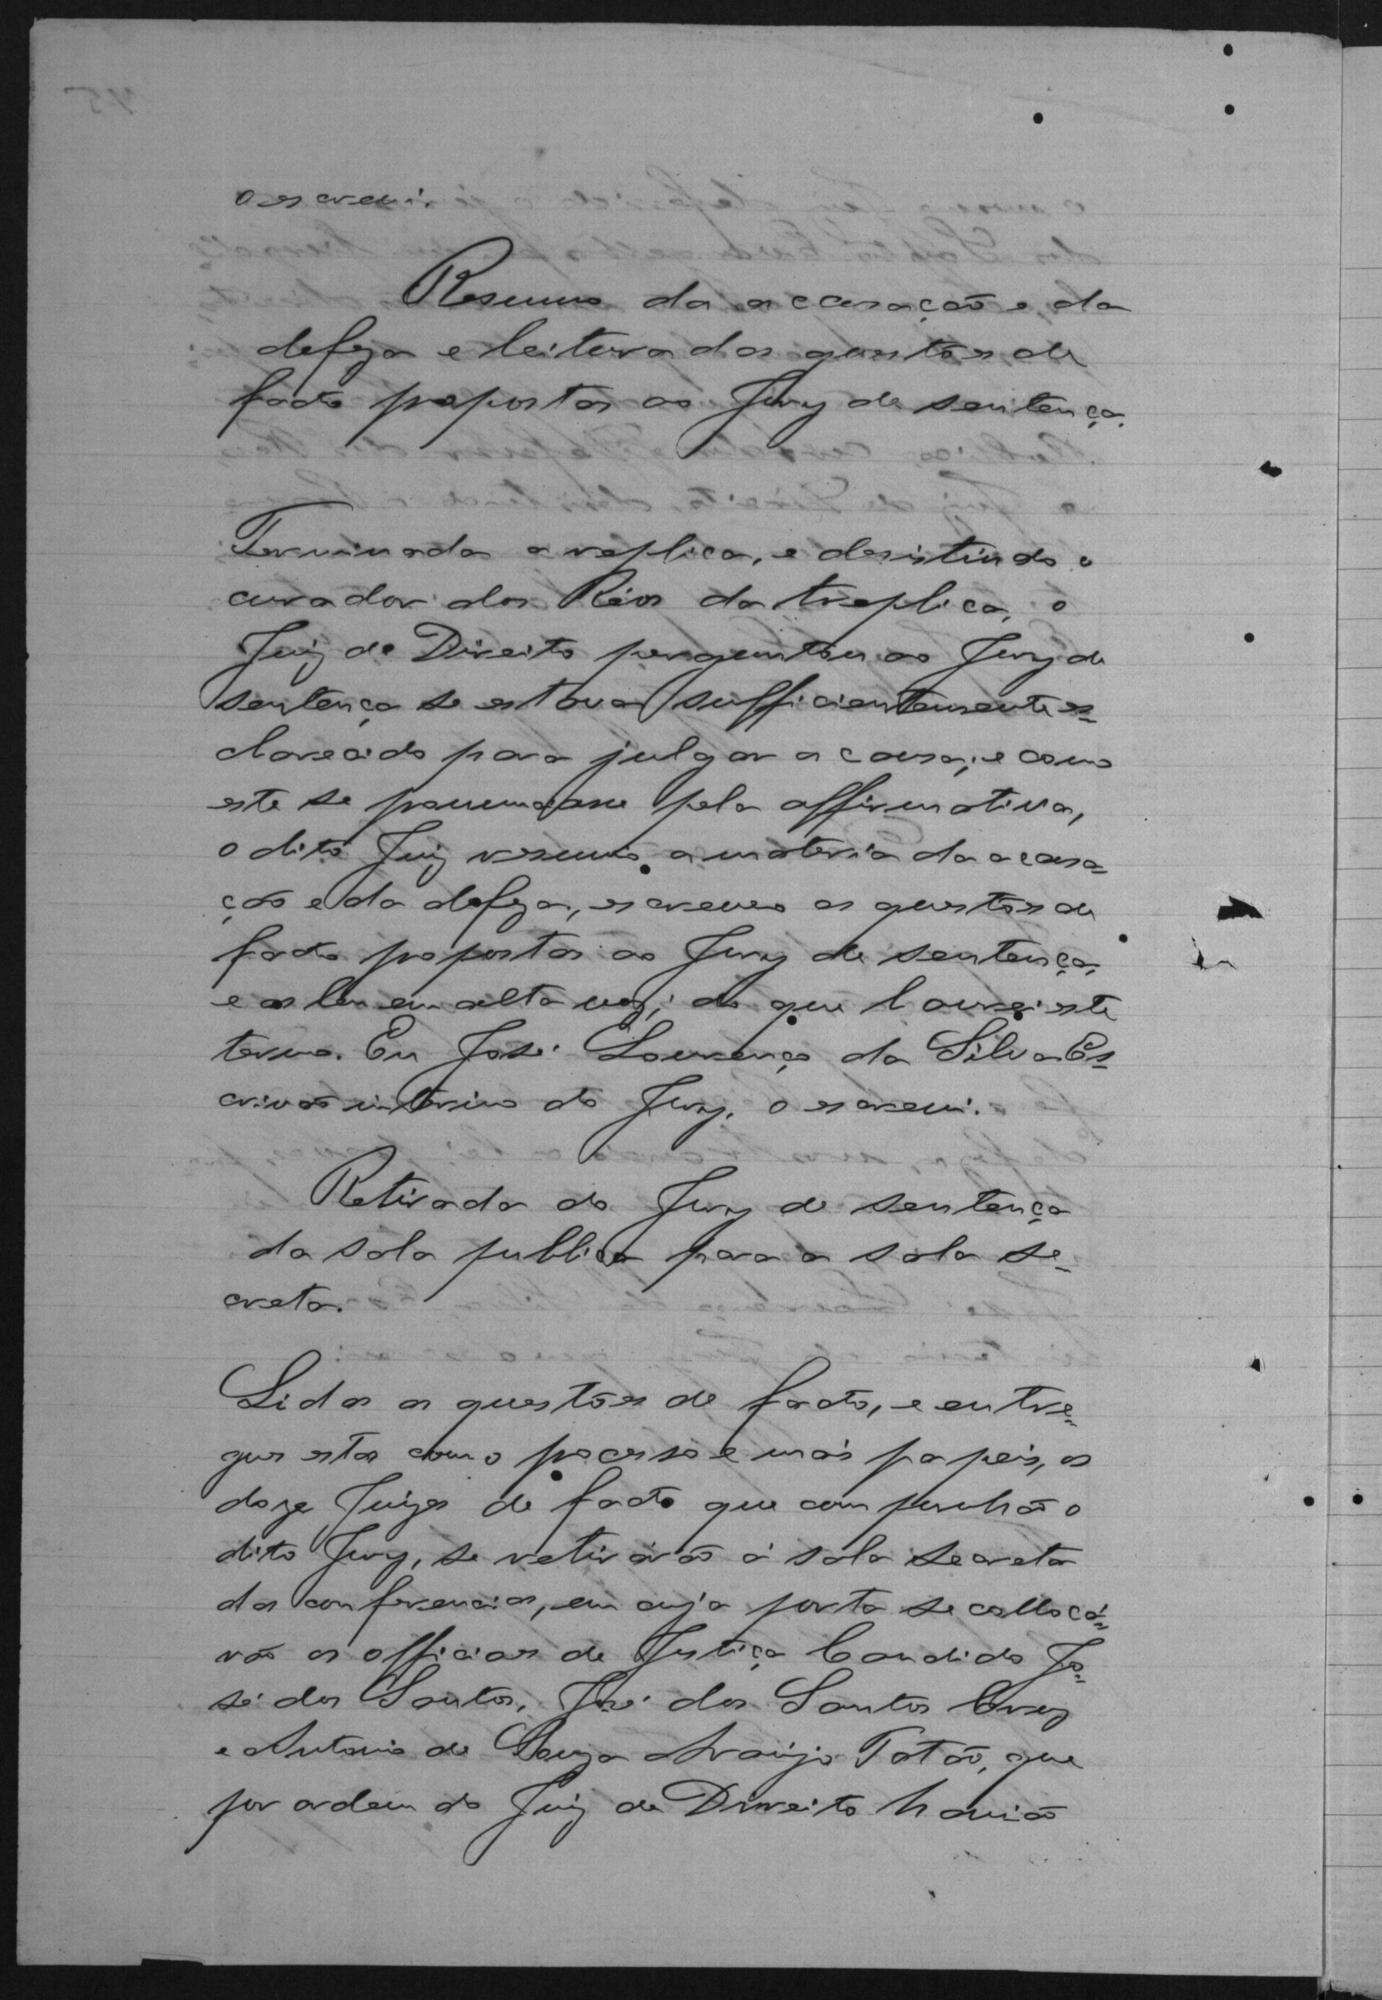 o escrevi.
Resumo da accusação e da
defeza e leitura das questões de
facto propostas ao Jury de sentença.
Terminada a replica, e desistindo o
curador dos Réos da treplica, o
Juiz de Direito perguntou ao Jury de
sentença se estava sufficientemente es-
clarecido para julgar a causa; e como
este se pronunciasse pela affirmativa,
o dito Juiz resumio a materia da accusa-
ção e da defeza, escreveo as questões de
facto propostas ao Jury de sentença,
e as leu em alta voz; do que lavrei este
termo. Eu José Lourenço da Silva Es-
crivão interino do Jury, o escrevi.
Retirada do Jury de sentença
da sala publica para a sala se-
creta.
Lidas as questões de facto, e entre-
gues estas com o processo e mais papeis, os
doze Juizes de facto que compunhão o
dito Jury, se retirárão á sala secreta
das conferencias, em cuja porta se collocá-
rão os officiaes de Justiça Candido Jo-
sé dos Santos, José dos Santos Cruz
e Antonio de Souza Araujo Tatão, que
por ordem do Juiz de Direito havião